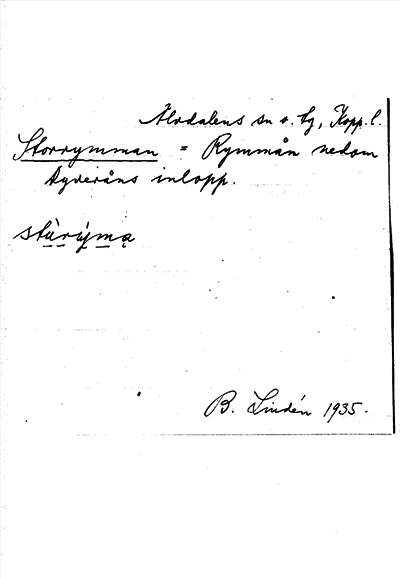 Älvdalens sn o. tg, Kopp. l.
Storrymman = Rymmån nedom
Tyveråns inlopp.
stùrýma
B. Lindén 1935.